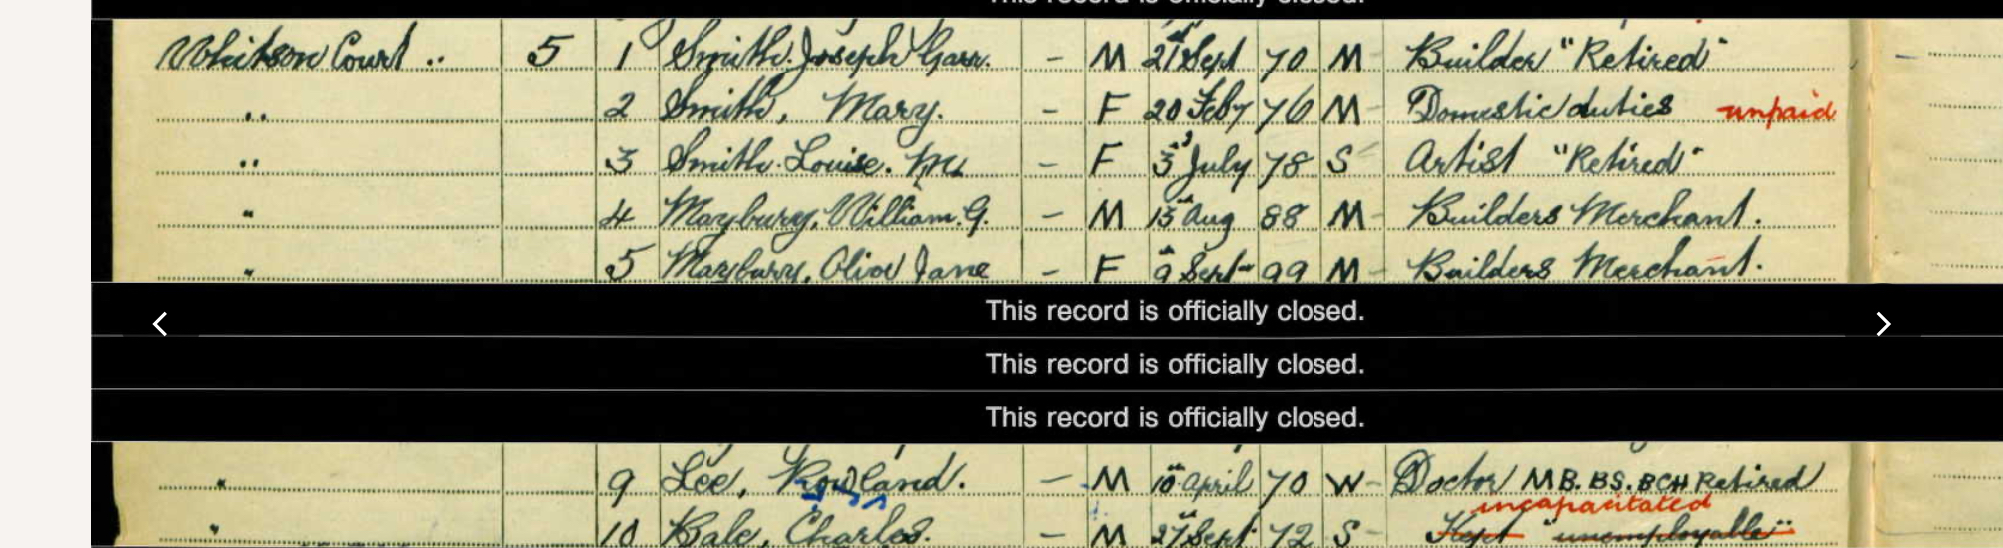 This record is officially closed.
Whitson Court .. 5 1 Smith. Joseph Garr. - M 21st Sept 70 M Builder "Retired"
.. 2 Smith, Mary. - F 20 Feby 76 M - Domestic duties unpaid
.. 3 Smith. Louise. - F 3 July 78 S Artist "Retired"
" 4 Maybury, William. G. - M 15th Aug 88 M - Builders Merchant.
" 5 Maybury, Olive Jane - F 9th Sept - 99 M - Builders Merchant.
This record is officially closed.
This record is officially closed.
This record is officially closed.
" 9 Lee, Rowland. - M 10th April 70 W - Doctor MB. BS. BCH Retired
incapacitated
" 10 Bale, Charles. - M 27th Sept 72 S - Kept "unemployable"